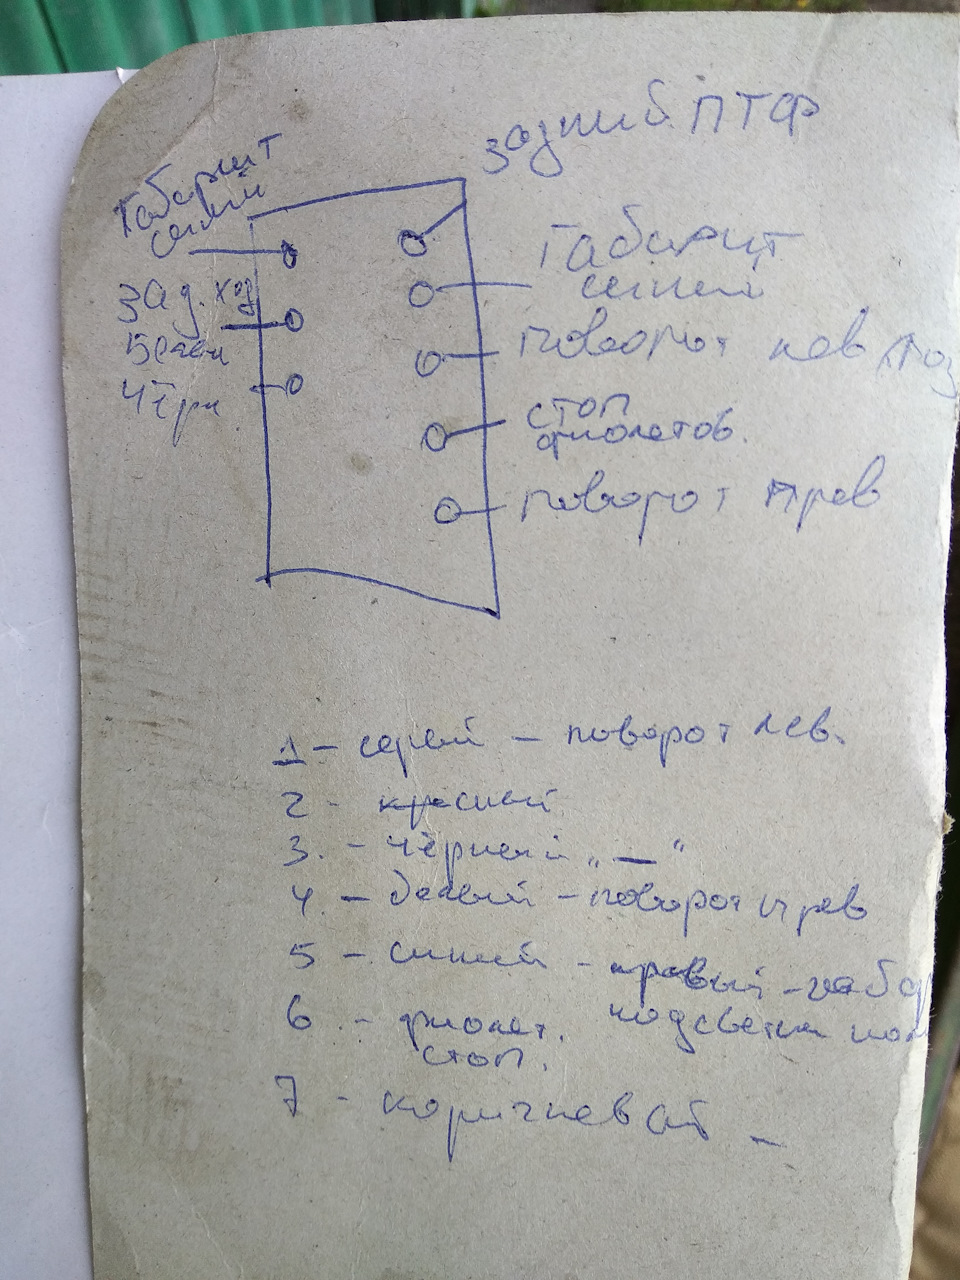 задний ПТФ
Габарит
синий
зад. ход
Белый
Чёрн
Габарит
синий
поворот лев
стоп
фиолетов.
поворот прав
1 - серый - поворот лев.
2 - красный
3. - чёрный „ — "
4. - белый - поворот прав
5 - синий - правый - габар
6. - фиолет. подсветка ном
стоп.
7 - коричневый -